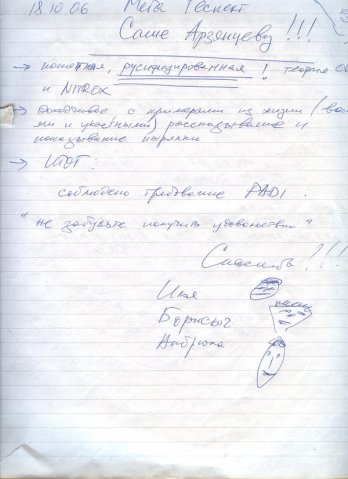 18.10.06 Мега Респект
Саше Арзянцеву !!!
→ понятная, русифицированная ! теория
и NITROX
→ с примерами из жизни (
ми и участными) рассказывание и
показывание нырялки
→ ИТОГ :
соблюдено требование PADI :
"не забудьте получить удовольствие"
Спасибо !!!
Илья
Борисыч
Андрюха